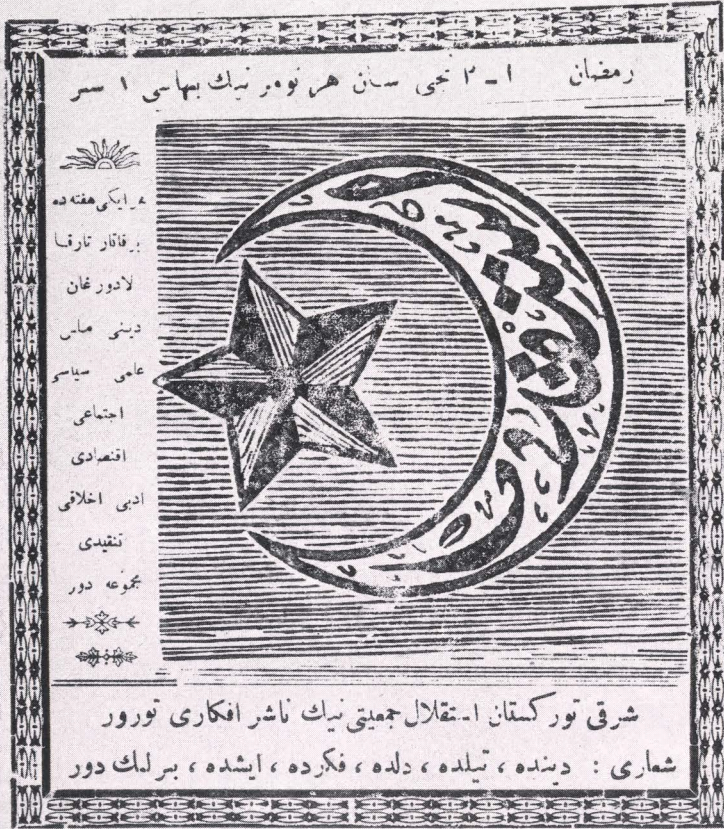 رمضان ١ ـ ٢ نجی سان هر نومر نیك بهاسی ١ سر
هر ایکی هفته ده
بر قاتار تارقا
لادور غان
دینی ملی
علمی سیاسی
اجتماعی
اقتصادی
ادبی اخلاقی
تنقیدی
مجموعه دور
استقلال
شرقی تورکستان استقلال جمعیتی نیك ناشر افکاری تورور
شعاری : دینده ، تیلده ، دلده ، فکرده ، ایشده ، برلك دور